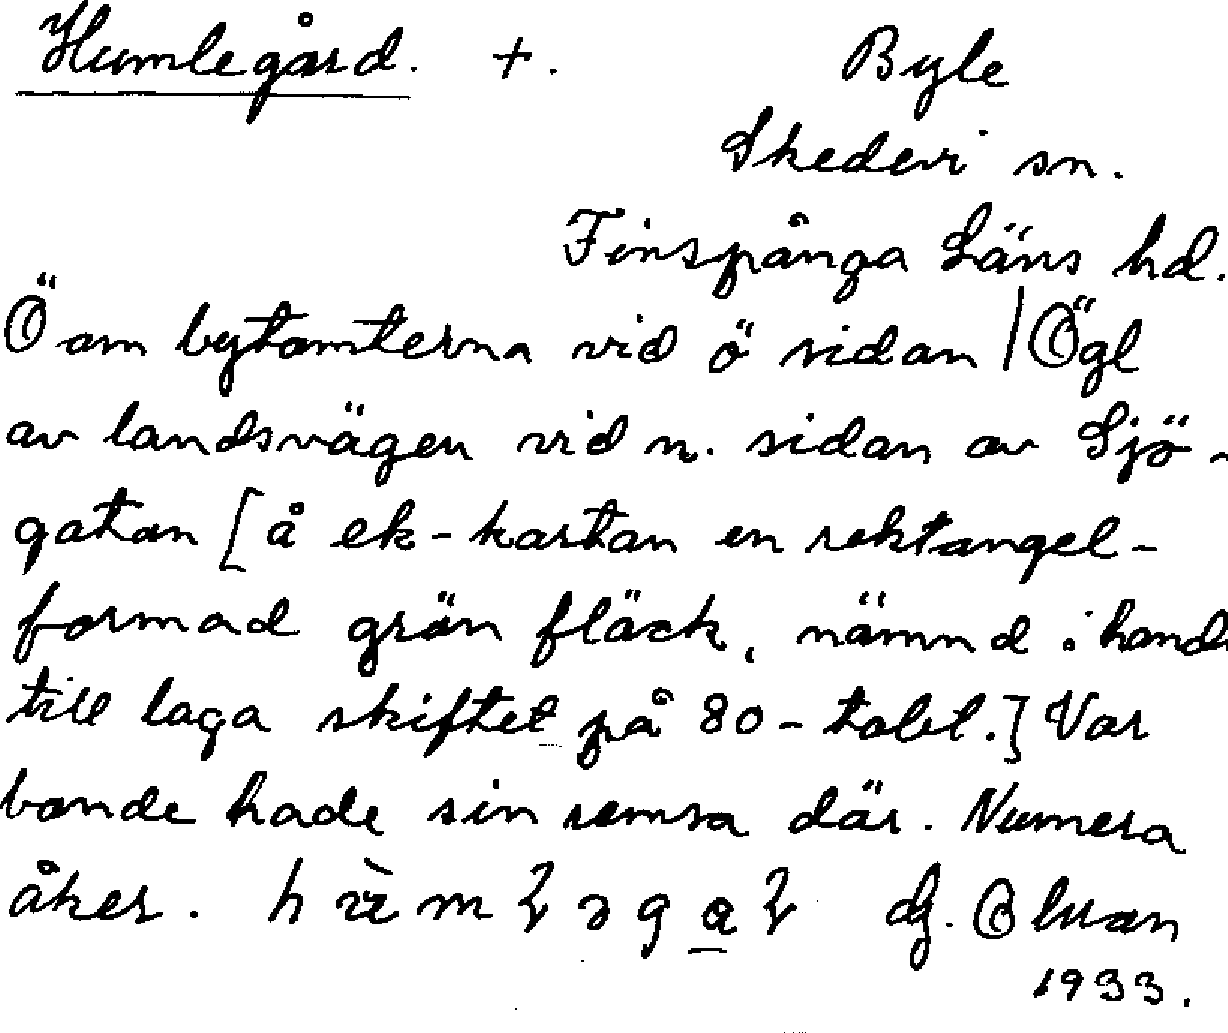 Humlegård. +. Byle
Skedevi sn.
Finspånga Läns hd.
Ö om bytomterna vid ö sidan | Ögl
av landsvägen vid n. sidan av Sjö-
gatan [å ek-kartan en rektangel-
formad grön fläck, nämnd i hand
till laga skiftet på 80-talet.] Var
bonde hade sin remsa där. Numera
åker.
1933.